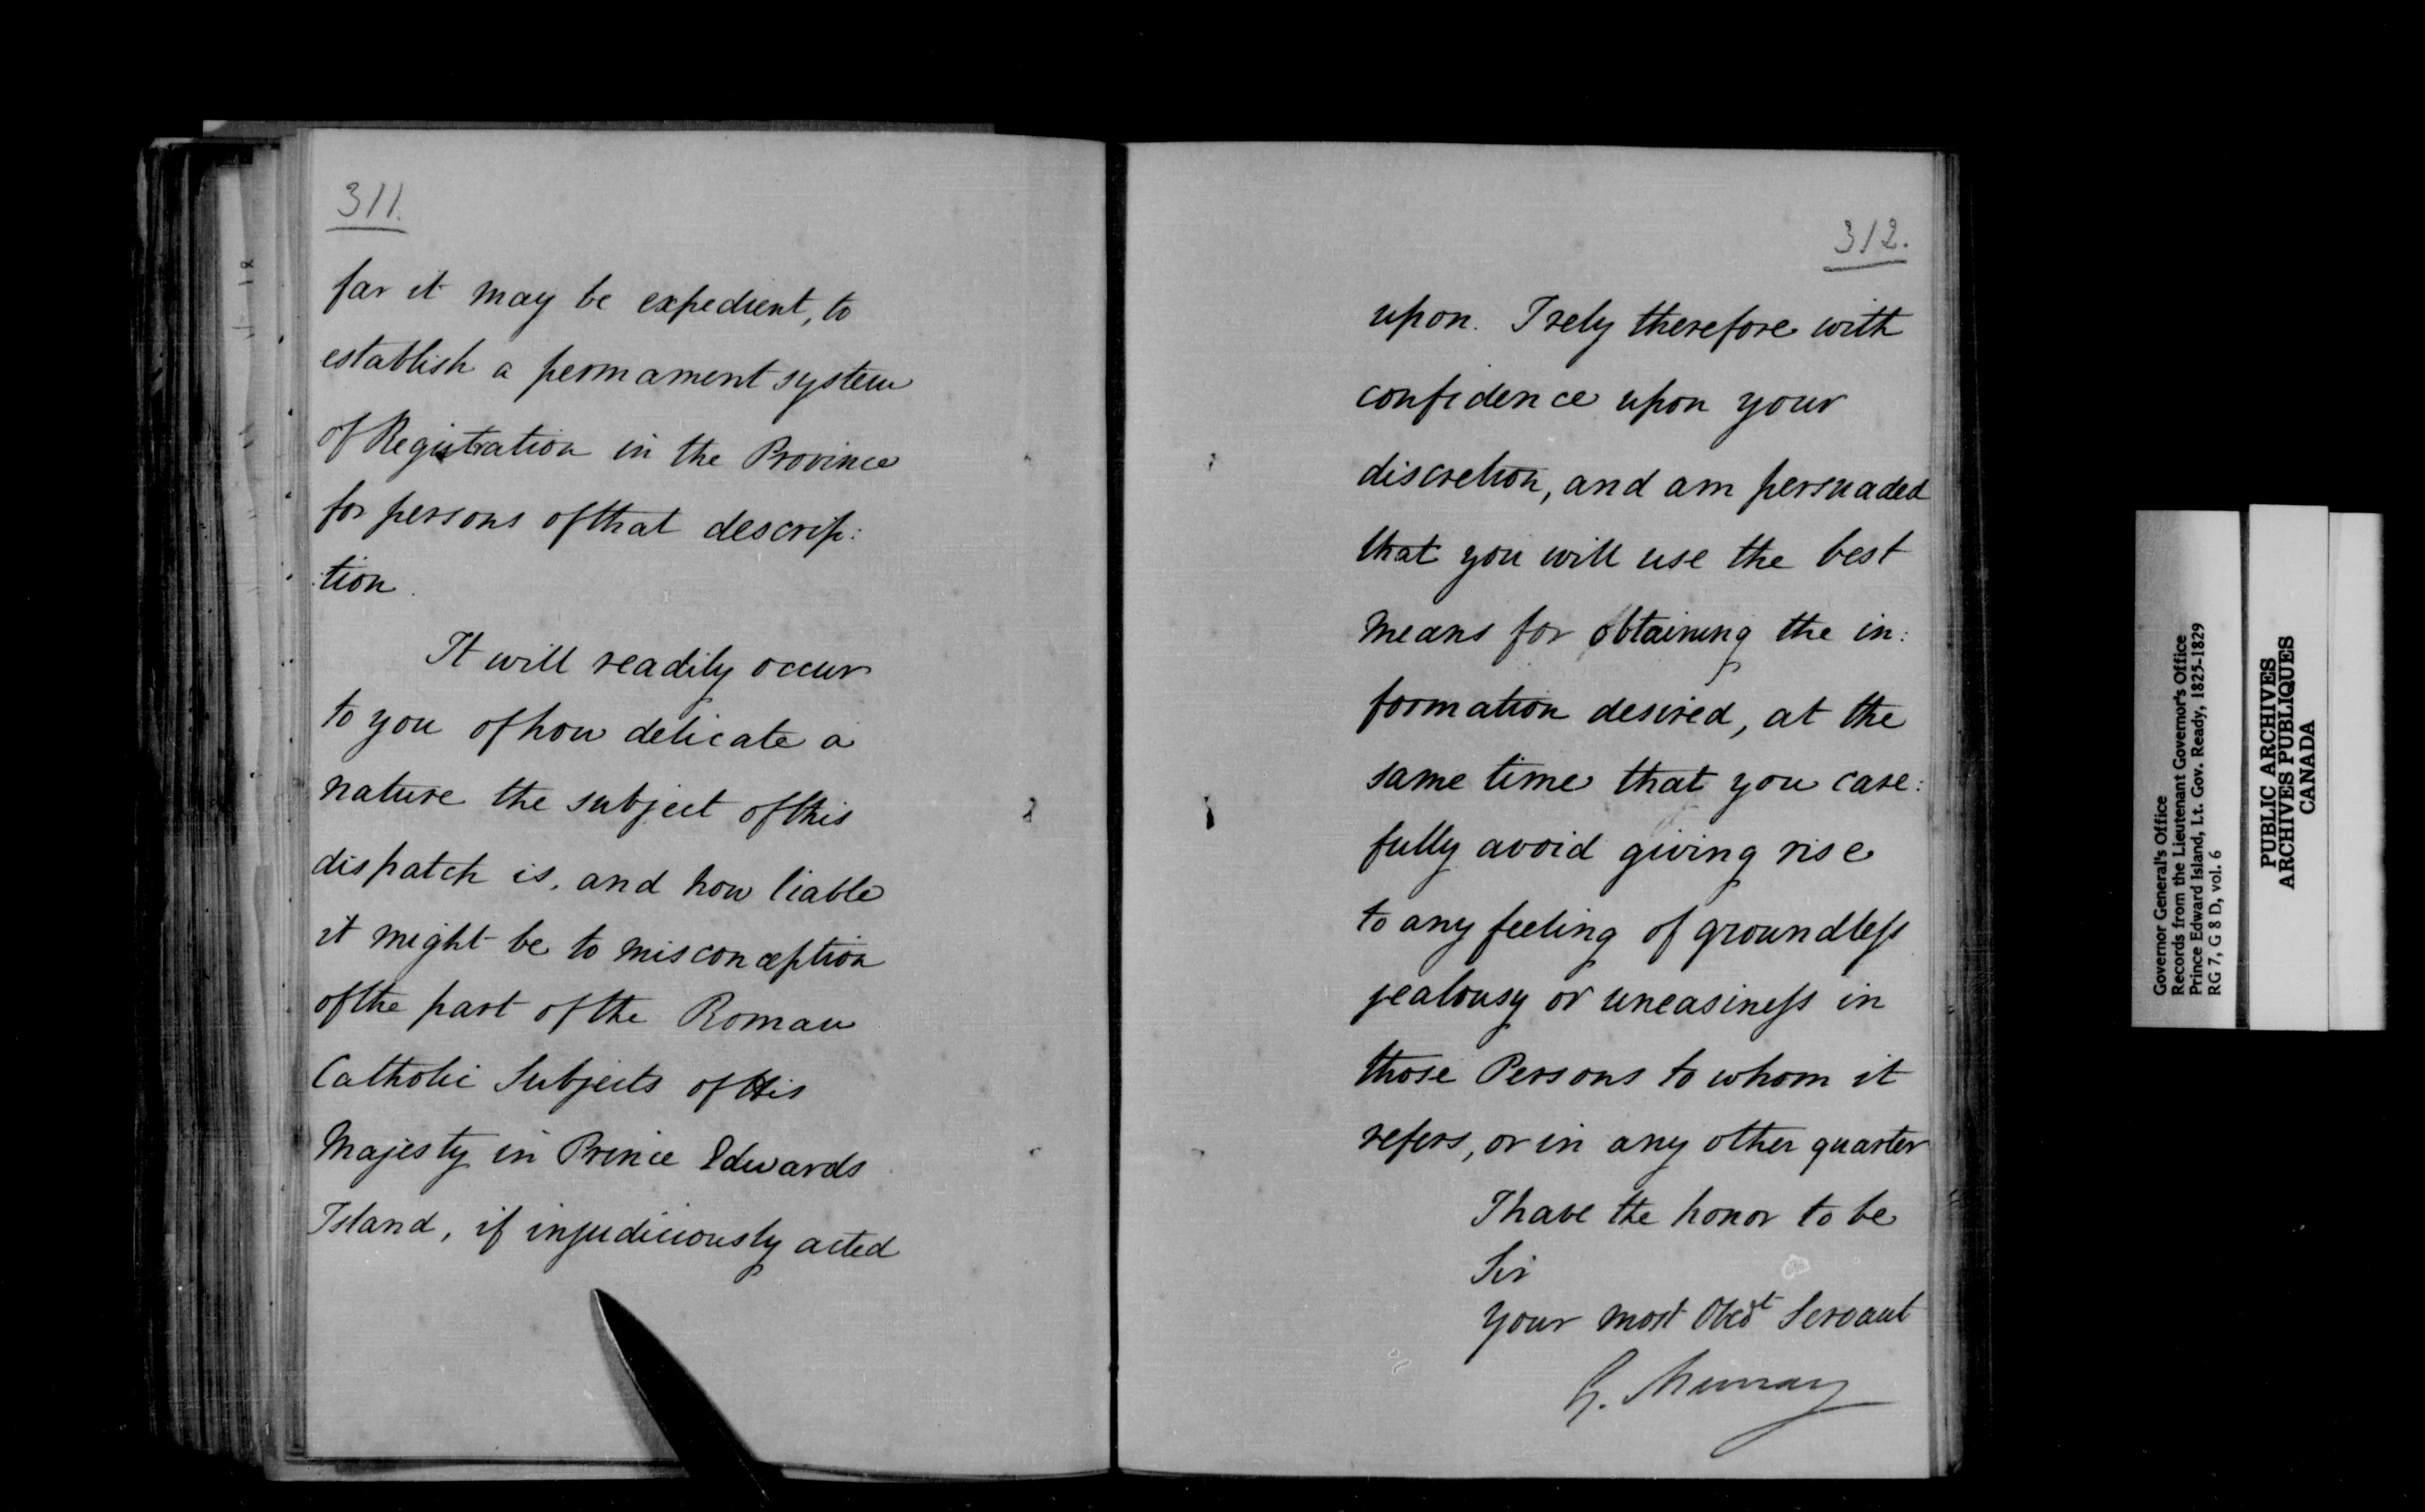 311.
far it may be expedient, to
establish a permament system
of Registration in the Province
for persons of that descrip:
:tion.
It will readily occur
to you of how delicate a
nature the subject of this
dispatch is, and how liable
it might be to misconception
of the part of the Roman
Catholic Subjects of His
Majesty in Prince Edwards
Island, if injudiciously acted
312.
upon. I rely therefore with
confidence upon your
discretion, and am persuaded
that you will use the best
means for obtaining the in:
formation desired, at the
same time that you care:
fully avoid giving rise
to any feeling of groundless
jealousy or uneasiness in
those Persons to whom it
refers, or in any other quarter
I have the honor to be
Sir
Your most Obedt Servant
G. Murray
Governor General's Office
Records from the Lieutenant Governor's Office
Prince Edward Island, Lt. Gov. Ready, 1825-1829
RG 7, G 8 D, vol. 6
PUBLIC ARCHIVES
ARCHIVES PUBLIQUES
CANADA